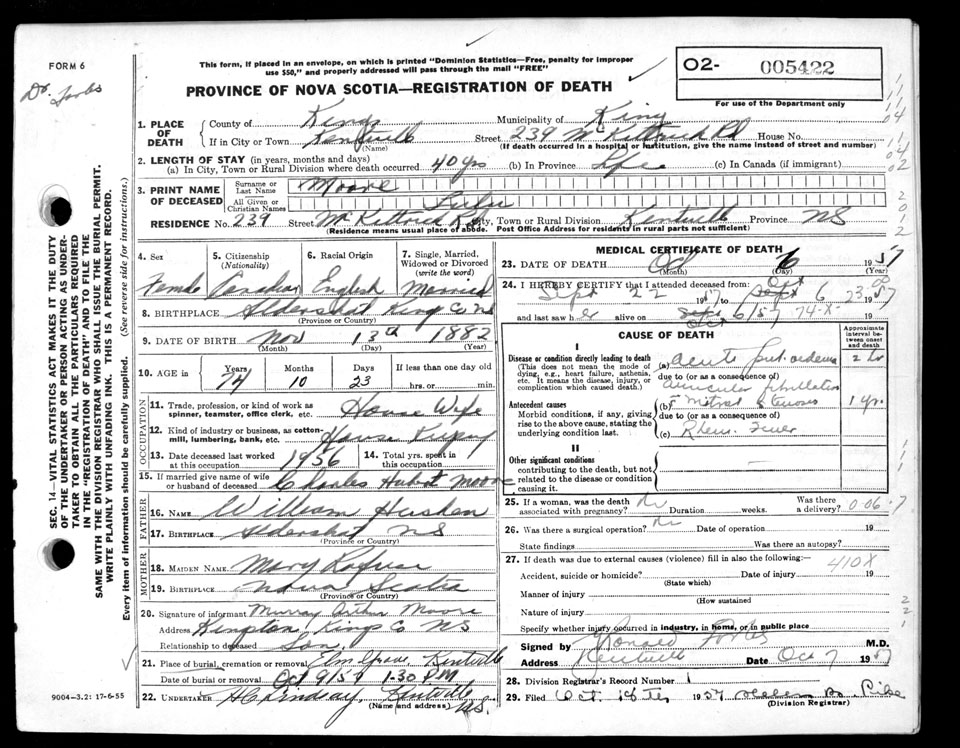 FORM 6
This form, if placed in an envelope, on which is printed "Dominion Statistics—Free, penalty for improper
use $50," and properly addressed will pass through the mail "FREE"
02- 005422
For use of the Department only
Dr. Forbes
PROVINCE OF NOVA SCOTIA—REGISTRATION OF DEATH
1. PLACE OF DEATH
County of Kings Municipality of King
If in City or Town Kentville Street 239 McKittrick Rd House No.
(Name) (If death occurred in a hospital or institution, give the name instead of street and number)
2. LENGTH OF STAY (in years, months and days)
(a) In City, Town or Rural Division where death occurred 40 yrs (b) In Province Life (c) In Canada (if immigrant)
3. PRINT NAME OF DECEASED
Surname or Last Name Moore
All Given or Christian Names
RESIDENCE No. 239 Street McKittrick Rd City, Town or Rural Division Kentville Province NS
(Residence means usual place of abode. Post Office Address for residents in rural parts not sufficient)
4. Sex 5. Citizenship (Nationality) 6. Racial Origin 7. Single, Married, Widowed or Divorced (write the word)
Female Canadian English Married
8. BIRTHPLACE Aldershot King Co NS
(Province or Country)
9. DATE OF BIRTH Nov 13th 1882
(Month) (Day) (Year)
10. AGE in Years Months Days If less than one day old
74 10 23 hrs. or min.
OCCUPATION
11. Trade, profession, or kind of work as spinner, teamster, office clerk, etc. House Wife
12. Kind of industry or business, as cotton-mill, lumbering, bank, etc. House Keeping
13. Date deceased last worked at this occupation 1956 14. Total yrs. spent in this occupation
15. If married give name of wife or husband of deceased Charles Hubert Moore
FATHER
16. NAME William
17. BIRTHPLACE Aldershot NS
(Province or Country)
MOTHER
18. MAIDEN NAME Mary Rafuse
19. BIRTHPLACE Nova Scotia
(Province or Country)
20. Signature of informant Murray Arthur Moore
Address Kingston, Kings Co NS
Relationship to deceased Son
21. Place of burial, cremation or removal Elm Grove, Kentville
Date of burial or removal Oct 9/57 1-30 PM
22. UNDERTAKER H C Lindsay, Kentville NS.
(Name and address)
MEDICAL CERTIFICATE OF DEATH
23. DATE OF DEATH Oct 6 1957
(Month) (Day) (Year)
24. I HEREBY CERTIFY that I attended deceased from
Sept 22 1957 to Sept Oct 6 1957
and last saw her alive on Sept Oct 6/57 19
CAUSE OF DEATH
Approximate interval between onset and death
I
Disease or condition directly leading to death (a) acute pul. oedema 2 hr
(This does not mean the mode of dying, e.g., heart failure, asthenia, etc. It means the disease, injury, or complication which caused death.)
due to (or as a consequence of)
auricular fibrillation
Antecedent causes (b) c Mitral stenosis 1 yr.
Morbid conditions, if any, giving rise to the above cause, stating the underlying condition last.
due to (or as a consequence of)
(c) Rheu. Fever
II
Other significant conditions
contributing to the death, but not related to the disease or condition causing it.
25. If a woman, was the death associated with pregnancy? No Duration weeks. Was there a delivery?
26. Was there a surgical operation? No Date of operation 19
State findings Was there an autopsy?
27. If death was due to external causes (violence) fill in also the following:— 410X
Accident, suicide or homicide? Date of injury 19
(State which)
Manner of injury
(How sustained)
Nature of injury
Specify whether injury occurred in industry, in home, or in public place
Signed by Donald Forbes M.D.
Address Kentville Date Oct 7 1957
28. Division Registrar's Record Number 1
29. Filed Oct. 18th 1957
(Division Registrar)
SEC. 14—VITAL STATISTICS ACT MAKES IT THE DUTY
OF THE UNDERTAKER OR PERSON ACTING AS UNDER-
TAKER TO OBTAIN ALL THE PARTICULARS REQUIRED
IN THE "REGISTRATION OF DEATH" AND TO FILE THE
SAME WITH THE DIVISION REGISTRAR WHO SHALL ISSUE THE BURIAL PERMIT.
WRITE PLAINLY WITH UNFADING INK. THIS IS A PERMANENT RECORD.
Every item of information should be carefully supplied. (See reverse side for instructions.)
9004—3.2: 17-6-55